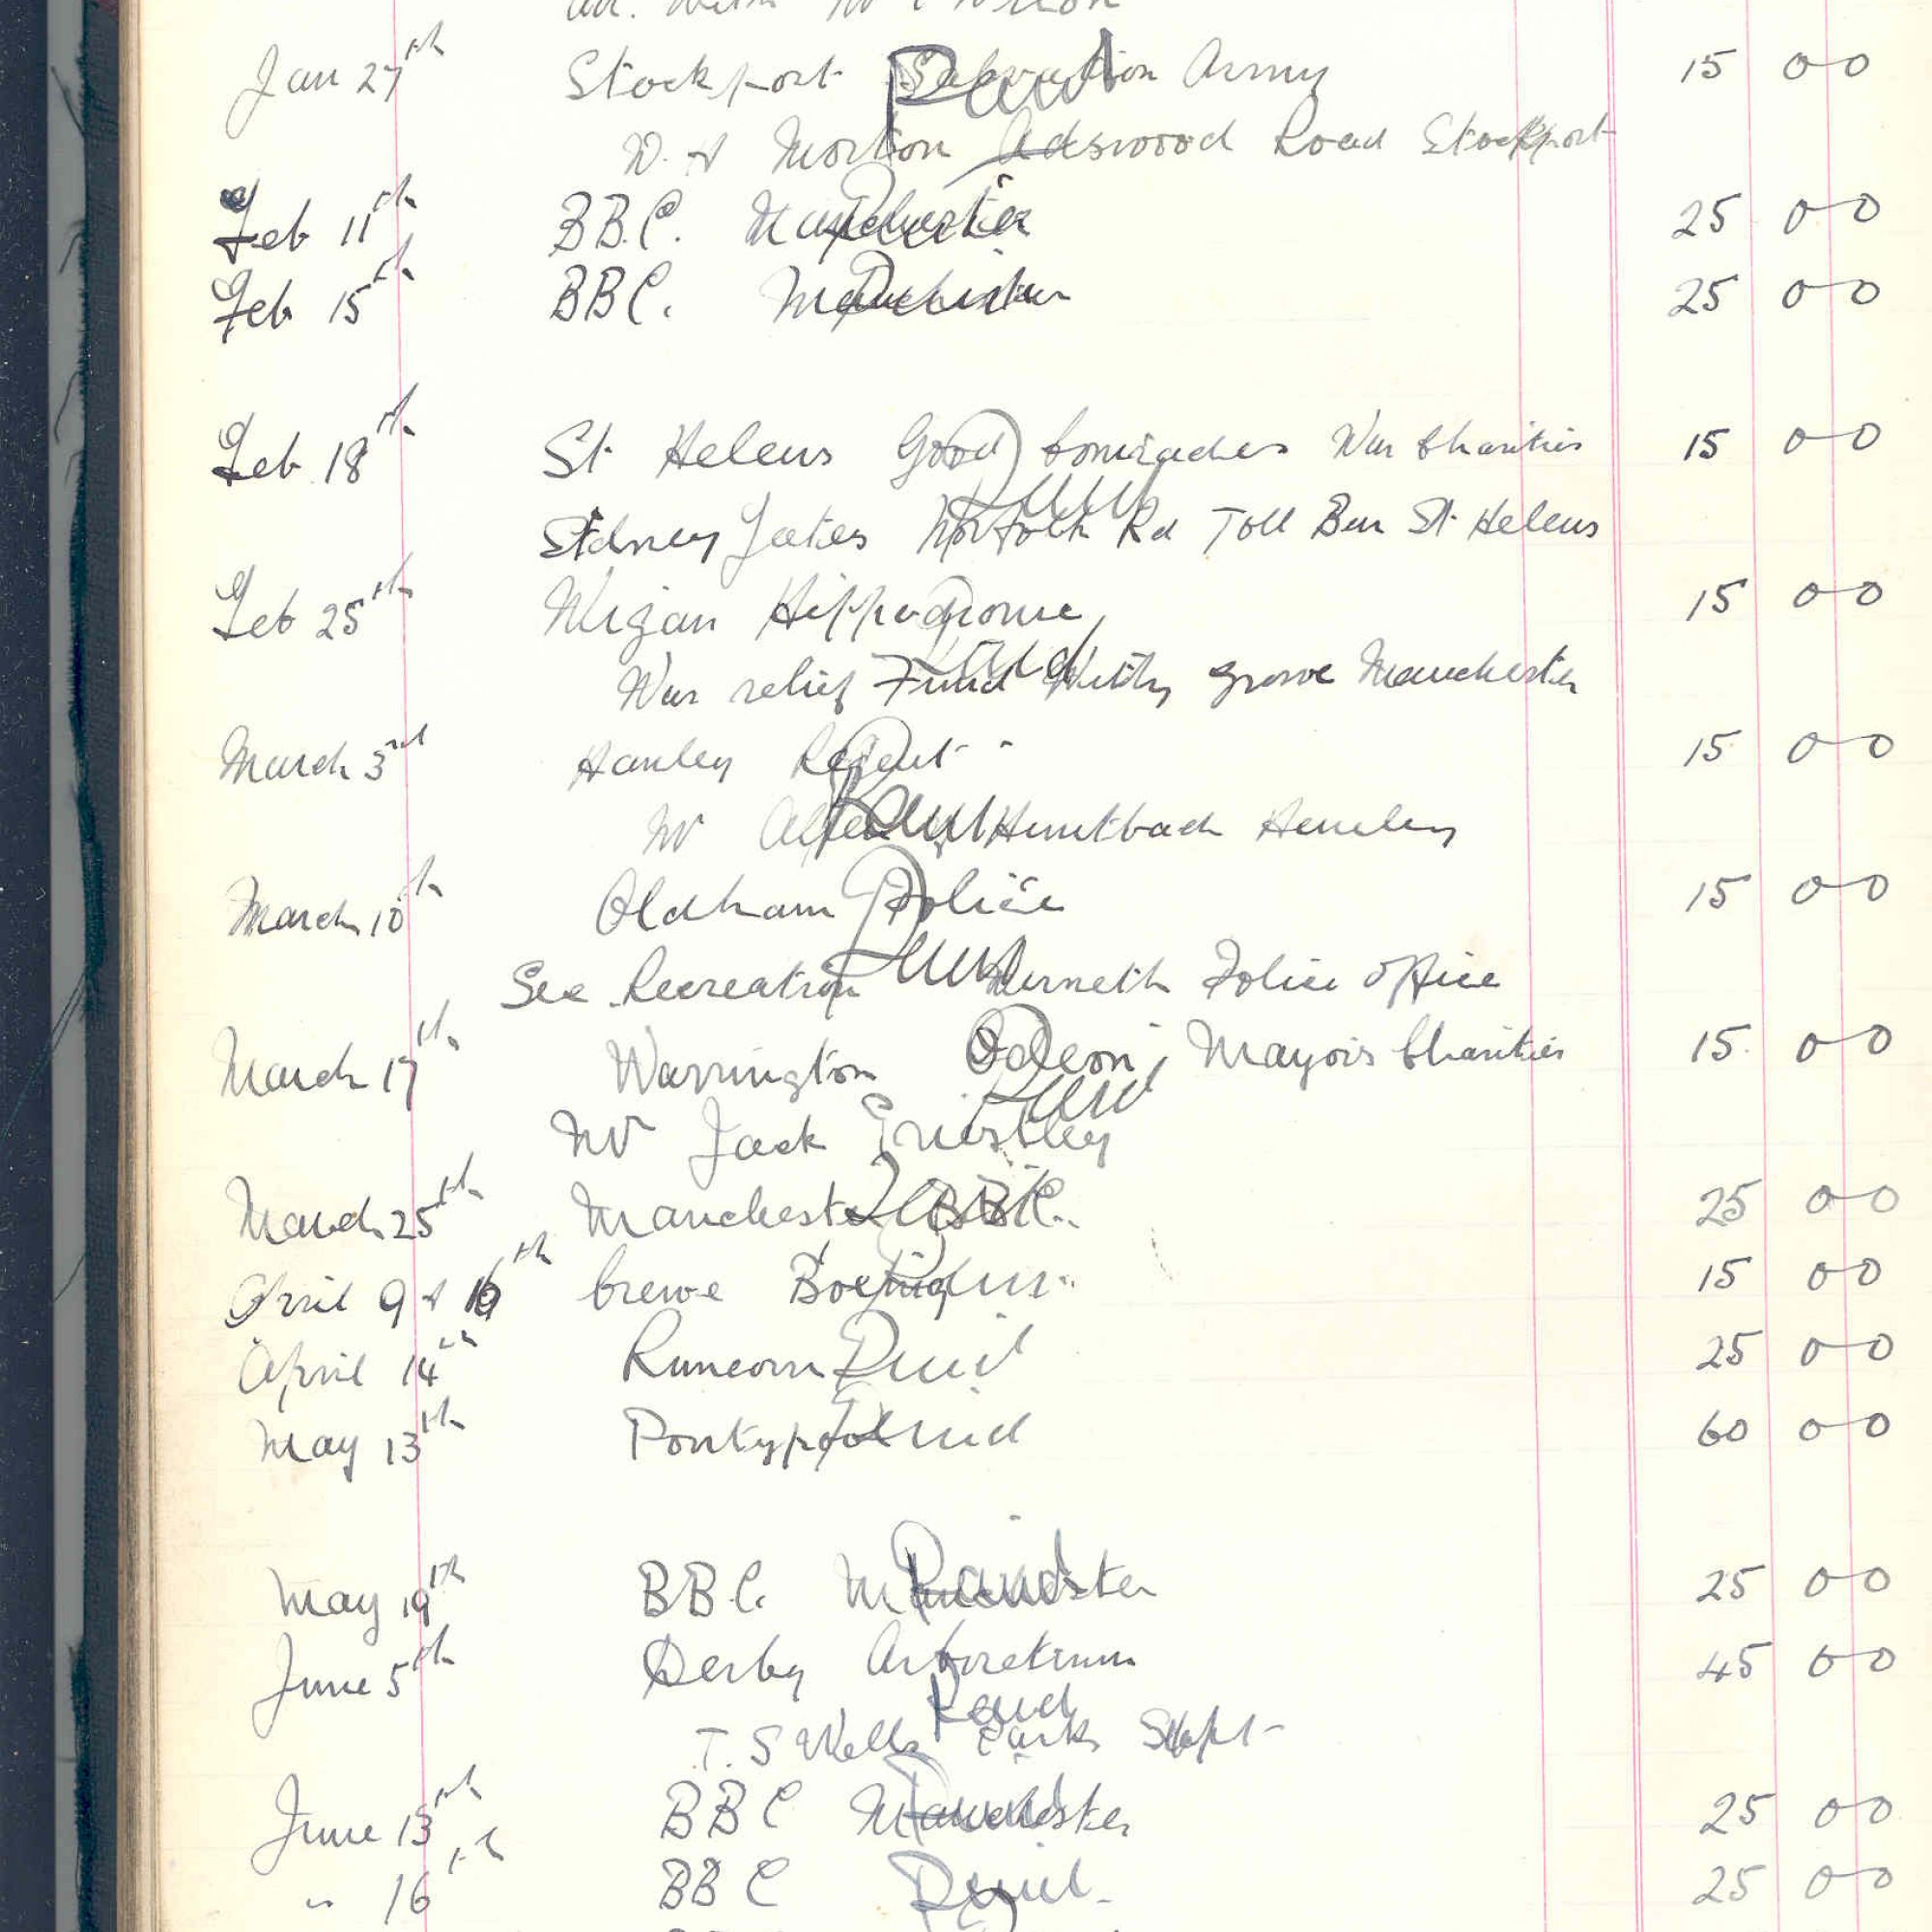 Jan 27th Stockport Salvation Army 15 0 0
Paid
Morton Adswood Road Stockport
Feb 11th B.B.C. Manchester 25 0 0
Feb 15th BBC. Manchester 25 0 0
Feb 18th St Helens Good Comrades War Charities 15 0 0
Paid
Sidney Yates Norfolk Rd Toll Bar St Helens
Feb 25th Wigan Hippodrome 15 0 0
Paid
War relief Fund Withy grove Manchester
March 3rd Hanley Regent 15 0 0
Paid
Mr Alfred Huntbach Hanley
March 10th Oldham Police 15 0 0
Paid
Sec Recreation Werneth Police Office
March 17th Warrington Odeon, Mayors Charities 15 0 0
Paid
Mr Jack Priestley
March 25th Manchester BBC. Paid 25 0 0
April 9 & 16th Crewe Boeing Paid 15 0 0
April 14th Runcorn Paid 25 0 0
May 13th Pontypool Paid 60 0 0
May 19th BBC. Manchester Paid 25 0 0
June 5th Derby Arboretum 45 0 0
Paid
T. S Wells Parks Supt
June 13th BBC Manchester Paid 25 0 0
" 16th BBC Paid 25 0 0